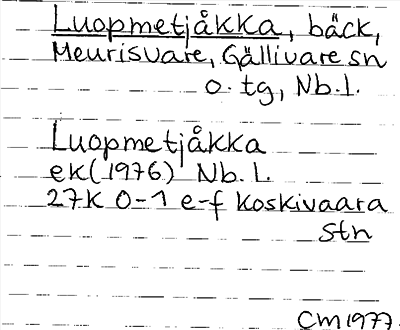 Luopmetjåkka, bäck,
Meurisvare, Gällivare sn
o. tg, Nb.l.
Luopmetjåkka
ek(1976) Nb.l.
27K 0-1 e-f Koskivaara
stn
CM1977.